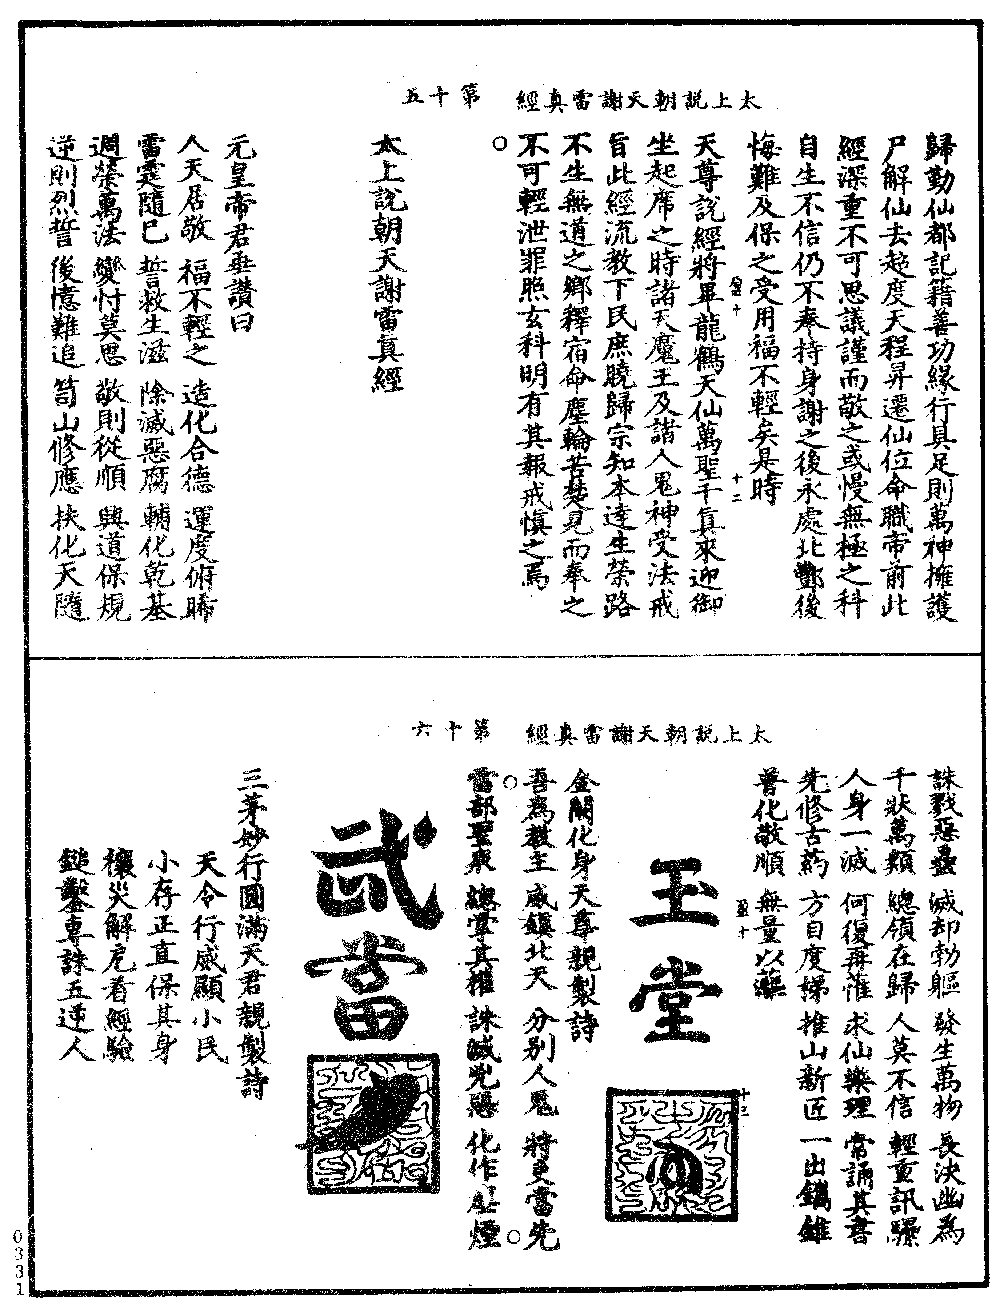 太上說朝天謝雷真經　第十五
歸勤仙都記籍善功緣行具足則萬神擁護
尸解仙去越度天程昇遷仙位命職帝前此
經深重不可思議謹而敬之或慢無極之科
自生不信仍不奉持身謝之後永處北酆後
悔難及保之受用福不輕矣是時
盈十
十二
天尊說經將畢龍鶴天仙萬聖千真來迎御
坐起席之時諸天魔王及諸人鬼神受法戒
旨此經流教下民庶曉歸宗知本達生榮路
不生無道之鄉釋宿命塵輪苦楚見而奉之
不可輕泄罪照玄科明有其報戒慎之焉
○
太上說朝天謝雷真經
元皇帝君垂讚曰
人天居敬　福不輕之　造化合德　運度俯晞
雷霆隨已　誓救生滋　除滅惡腐　輔化乾基
週榮萬法　變忖莫思　敬則從順　興道保規
逆則烈誓　後憶難追　笥山修應　扶化天隨
太上說朝天謝雷真經　第十六
誅戮惡蠱　滅却勃軀　發生萬物　長決幽為
千狀萬類　總領在歸　人莫不信　輕重訊騾
人身一滅　何復再惟　求仙樂理　常誦其書
先修古药　方自度娣　推山新匠　一出鐫錐
普化敬順　無量以蘊
盈十
十三
玉堂
金闕化身天尊親製詩
吾為教主威鎮北天　分別人鬼　將吏當先
○
雷部聖衆　總掌其權　誅滅兇惡　化作塵煙
○
武當
三茅妙行圓滿天君親製詩
天令行威顯小民
小存正直保其身
穰災解厄看經驗
鎚鑿專誅五逆人
0331